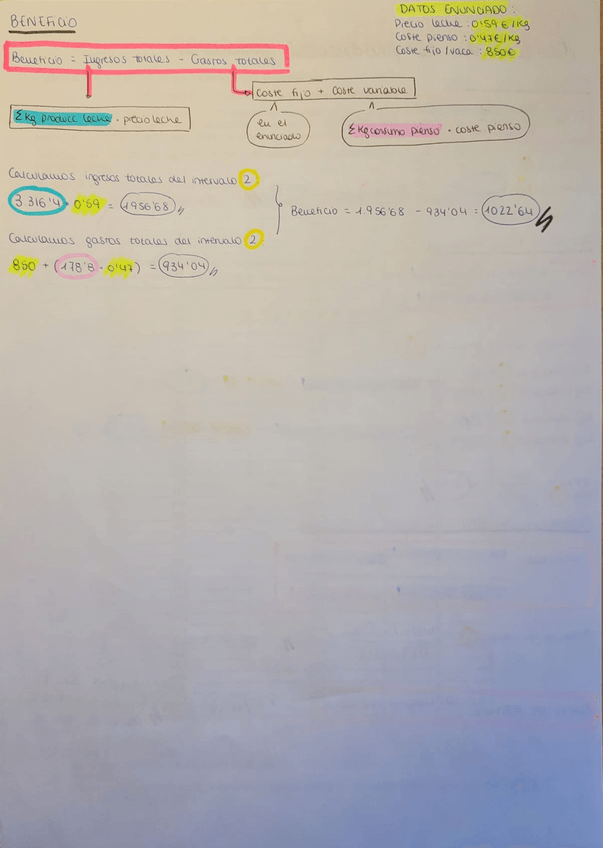 BENEFICIO
DATOS ENUNCIADO:
Precio leche: 0'59€/kg
Coste pienso: 0'47€/kg
Coste fijo/vaca: 850€
Beneficio = Ingresos totales - Gastos totales
Coste fijo + Coste variable
Σkg produce leche · precio leche
en el
enunciado
Σkg consumo pienso · coste pienso
Calculamos ingresos totales del intervalo 2
3.316'4 · 0'59 = 1956'68
Beneficio = 1956'68 - 934'04 = 1022'64
Calculamos gastos totales del intervalo 2
850 + (178'8 · 0'47) = 934'04